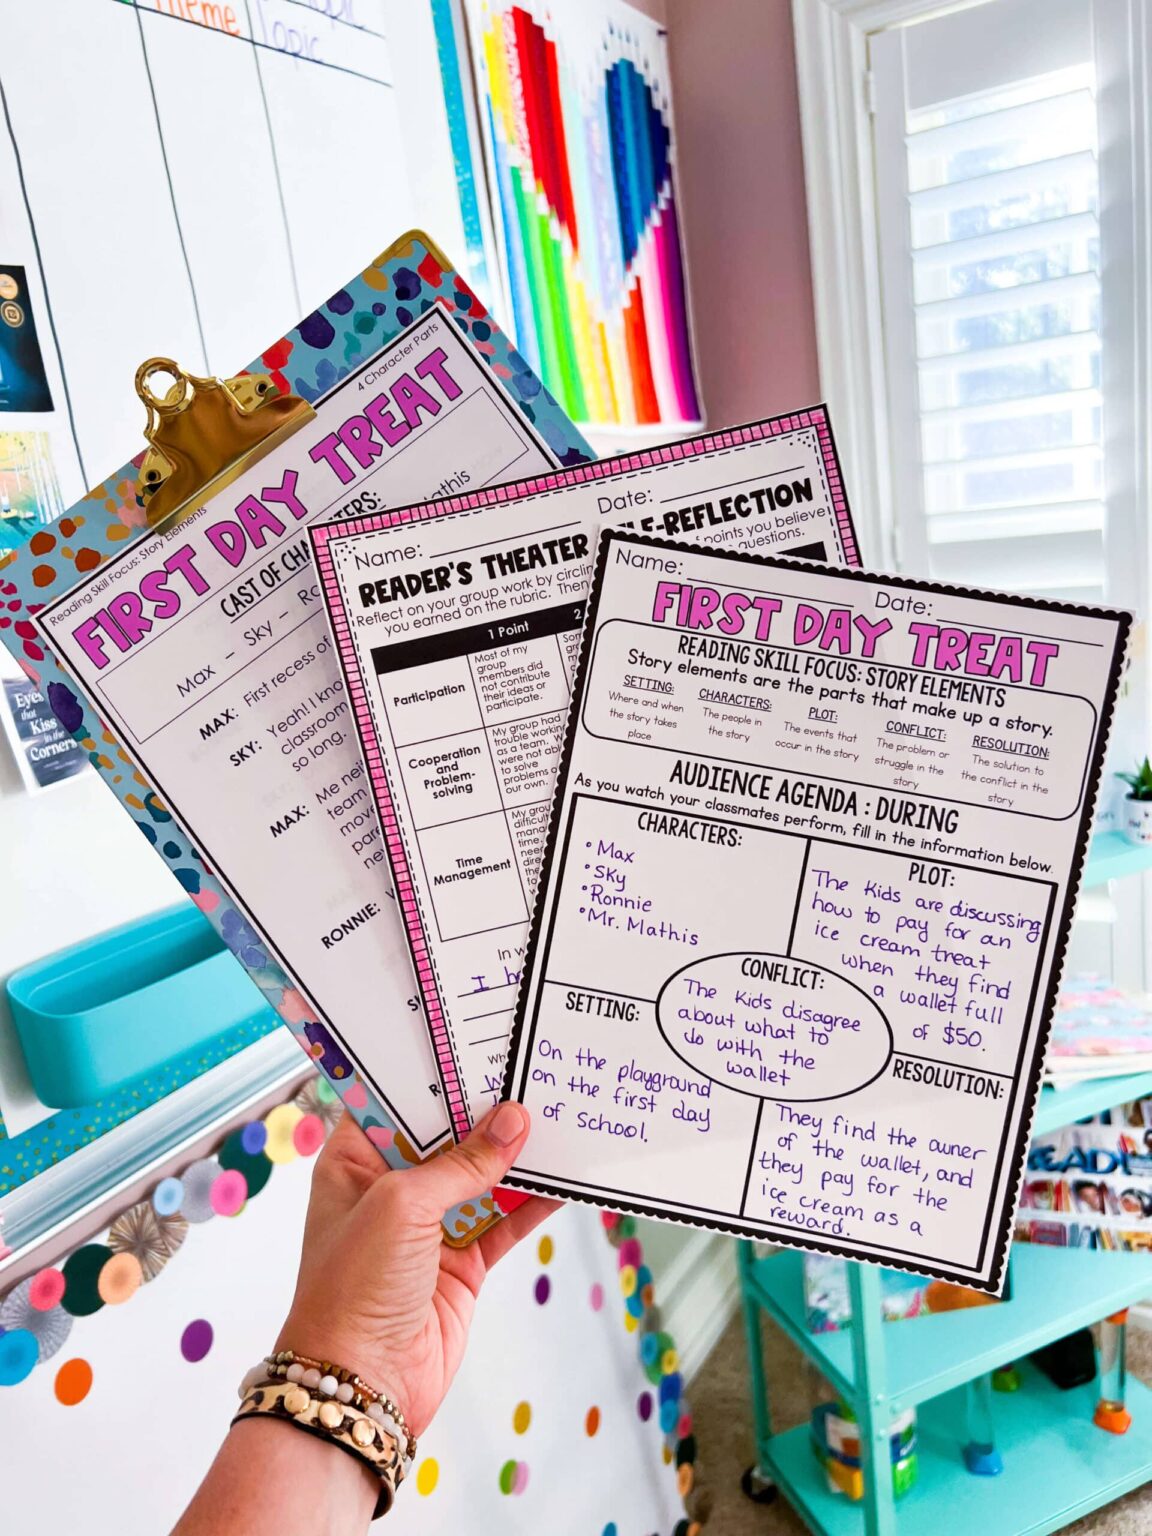 Theme
Topic
Topic
Reading Skill Focus: Story Elements
4 Character Parts
FIRST DAY TREAT
CAST OF
Max - Sky -
MAX: First recess of
SKY: Yeah! I
classroom
so long.
MAX: Me
team
RONNIE:
Name: Date:
READER'S THEATER
Reflect on your group work by
points you believe
you earned on the rubric. Then
questions.
1 Point
2
Participation
Most of my
group
members did
not contribute
their ideas or
participate.
Cooperation
and
Problem-
solving
My group had
trouble
as a team.
were not
to solve
problems
our own.
Time
Management
I
Name: Date:
FIRST DAY TREAT
READING SKILL FOCUS: STORY ELEMENTS
Story elements are the parts that make up a story.
SETTING:
Where and when
the story takes
place
CHARACTERS:
The people in
the story
PLOT:
The events that
occur in the story
CONFLICT:
The problem or
struggle in the
story
RESOLUTION:
The solution to
the conflict in the
story
AUDIENCE AGENDA : DURING
As you watch your classmates perform, fill in the information below.
CHARACTERS:
• Max
• Sky
• Ronnie
• Mr. Mathis
PLOT:
The kids are discussing
how to pay for an
ice cream treat
when they find
a wallet full
of $50.
CONFLICT:
The kids disagree
about what to
do with the
wallet
SETTING:
On the playground
on the first day
of school.
RESOLUTION:
They find the owner
of the wallet, and
they pay for the
ice cream as a
reward.
Eyes
that
Kiss
in the
Corners